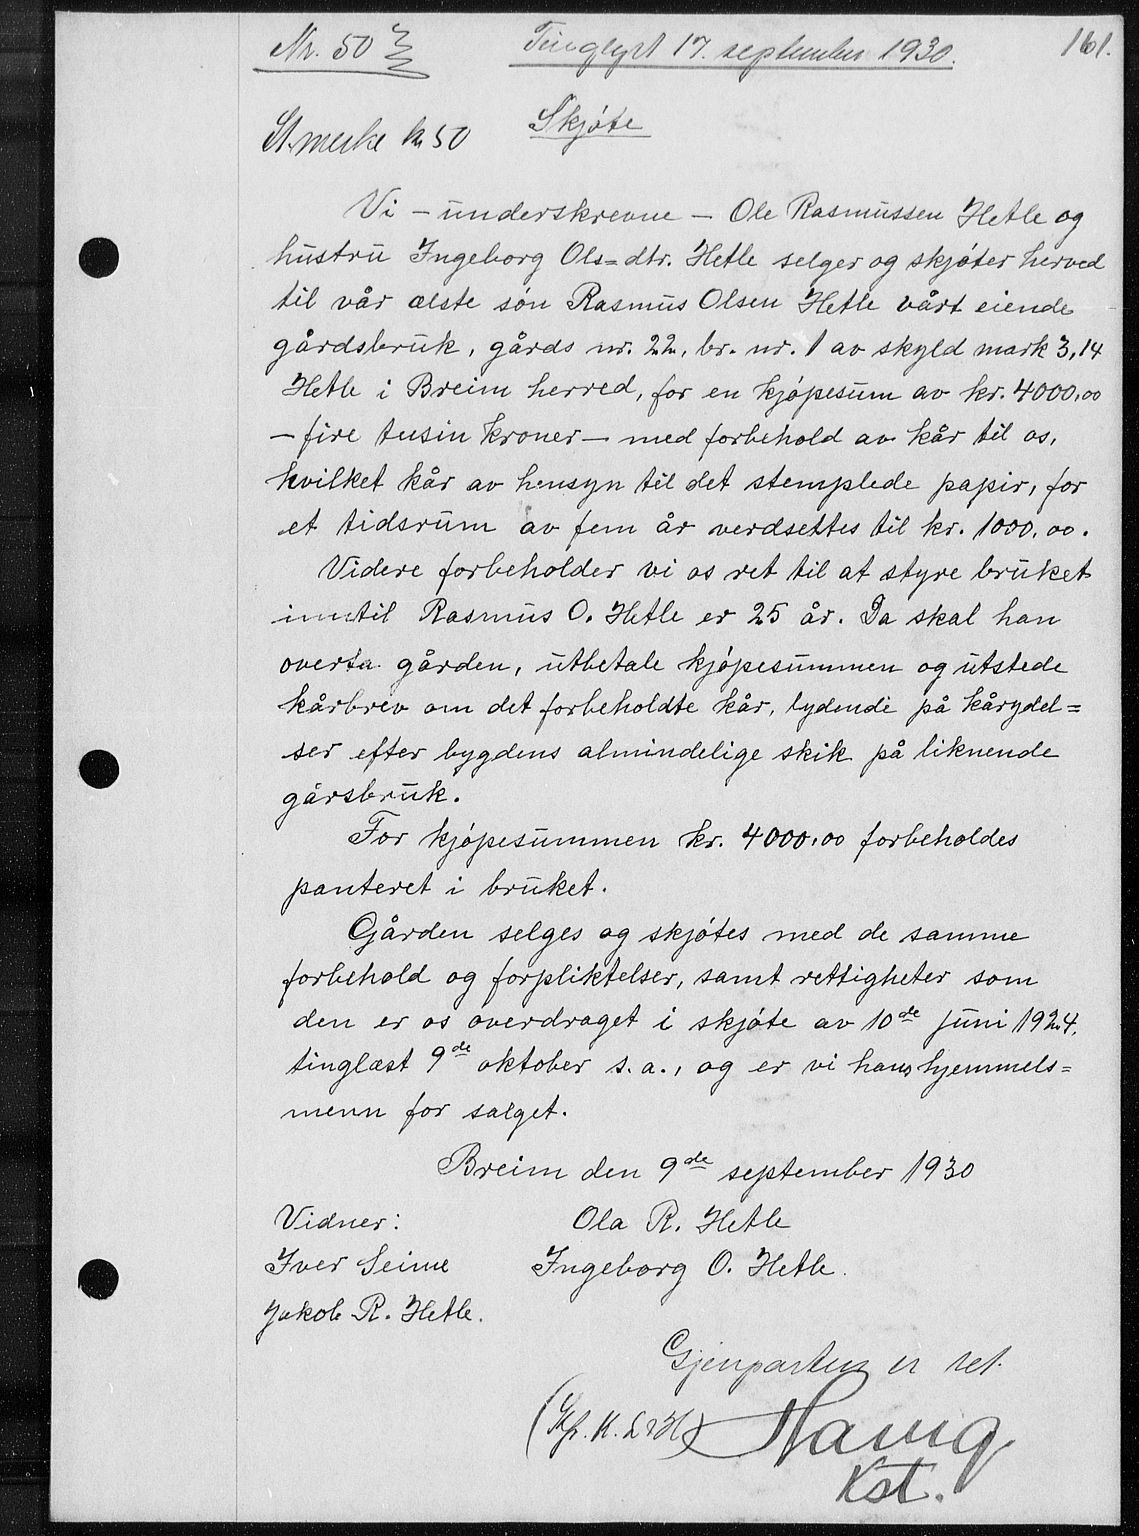 Nr. 503
Tinglyst 17. september 1930.
161.
St.merke kr 50
Skjøte
Vi – underskrevne – Ole Rasmussen Hetle og
hustru Ingeborg Ols=dtr. Hetle selger og skjøter herved
til vår ælste søn Rasmus Olsen Hetle vårt eiende
gårdsbruk, gårds nr. 22, br. nr. 1 av skyld mark 3,14
Hetle i Breim herred, for en kjøpesum av kr. 4000,00
– fire tusin kroner – med forbehold av kår til os,
hvilket kår av hensyn til det stemplede papir, for
et tidsrum av fem år verdsettes til kr. 1000,00.
Videre forbeholder vi os ret til at styre bruket
inntil Rasmus O. Hetle er 25 år. Da skal han
overta gården, utbetale kjøpesummen og utstede
kårbrev om det forbeholdte kår, lydende på kårydel=
ser efter bygdens almindelige skik på liknende
gårsbruk.
For kjøpesummen kr. 4000,00 forbeholdes
panteret i bruket.
Gården selges og skjøtes med de samme
forbehold og forpliktelser, samt rettigheter som
den er os overdraget i skjøte av 10de juni 1924,
tinglæst 9de oktober s.a., og er vi hans hjemmels=
menn for salget.
Breim den 9de september 1930
Vidner:
Ola R. Hetle
Iver Seime
Ingeborg O. Hetle.
Jakob R. Hetle.
Gjenparten er ret.
Havig
Kst.